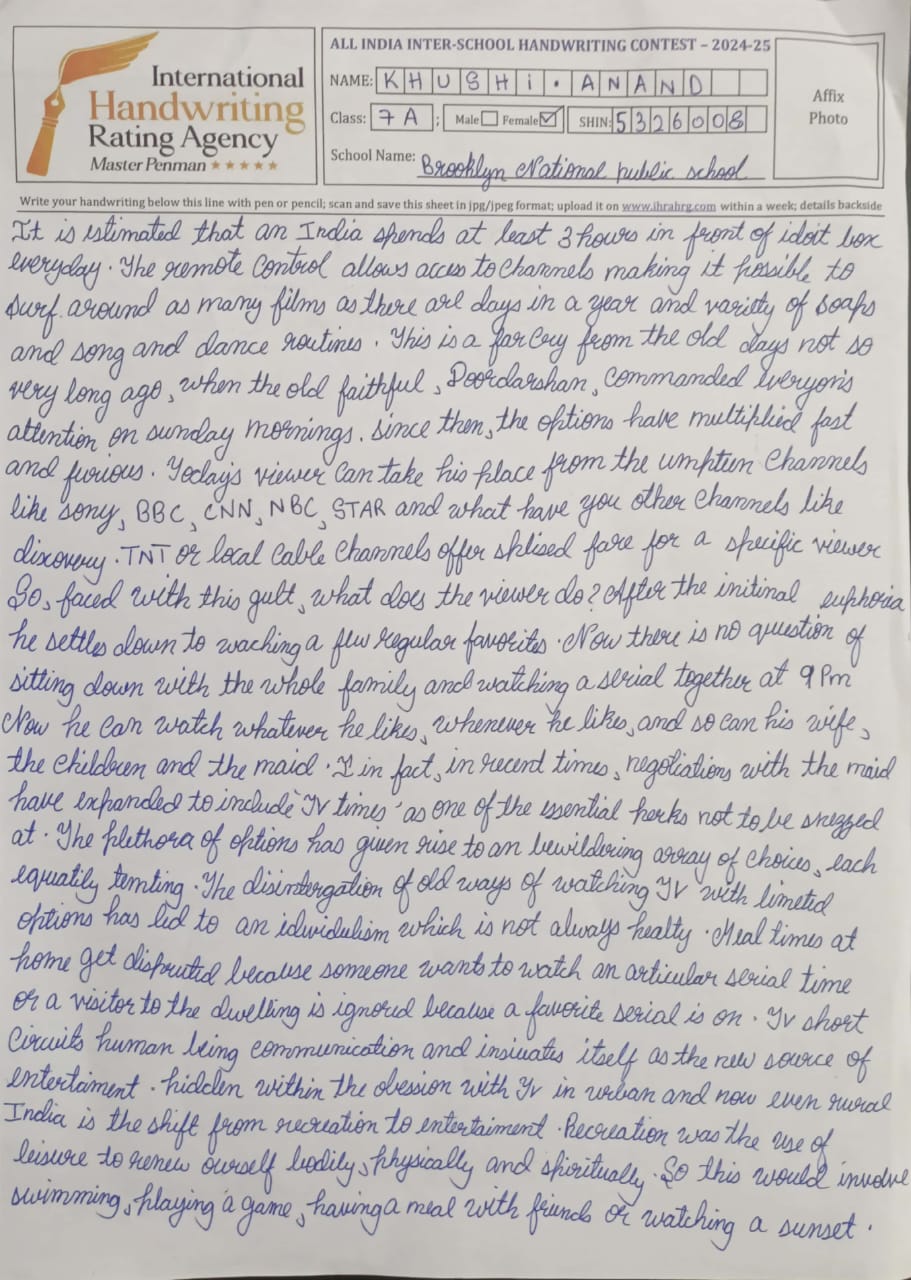 International
Handwriting
Rating Agency
Master Penman
ALL INDIA INTER-SCHOOL HANDWRITING CONTEST – 2024-25
NAME: KHUSHi. ANAND
Class: 7 A ; Male Female SHIN: 5326008
School Name: Brooklyn National public school
Affix
Photo
Write your handwriting below this line with pen or pencil; scan and save this sheet in jpg/jpeg format; upload it on www.ihrahrg.com within a week; details backside
It is estimated that an India spends at least 3 hours in front of idoit box
everyday. The remote control allows acces to channels making it possible to
surf. around as many films as there are days in a year and variety of soaps
and song and dance routines. This is a far cry from the old days not so
very long ago, when the old faithful, Doordarshan, commanded everyon's
attention on sunday mornings. since then, the options have multiplied fast
and furious. Today's viewer can take his place from the umpteen channels
like sony, BBC, CNN, NBC, STAR and what have you other channels like
discovery. TNT or local cable channels offer splised fare for a specific viewer
So, faced with this gult, what does the viewer do? After the initinal euphoria
he settles down to waching a few regular favorites. Now there is no question of
sitting down with the whole family and watching a serial together at 9 Pm
Now he can watch whatever he likes, whenever he likes, and so can his wife,
the children and the maid. I in fact, in recent times, negotiations with the maid
have expanded to include 'TV times' as one of the essential perks not to be snezzed
at. The plethora of options has given rise to an bewildering array of choices, each
equatily temting. The disintergation of old ways of watching TV with limeted
options has led to an idividulism which is not always healty. Meal times at
home get dispruted because someone wants to watch an articular serial time
or a visitor to the dwelling is ignored because a favorite serial is on. TV short
circuits human being communication and insiuates itself as the new source of
entertaiment. hidden within the obession with TV in urban and now even rural
India is the shift from recreation to entertaiment. Recreation was the use of
leisure to renew ourself bodily, physically and spiritually. So this would involve
swimming, playing a game, having a meal with friends or watching a sunset.